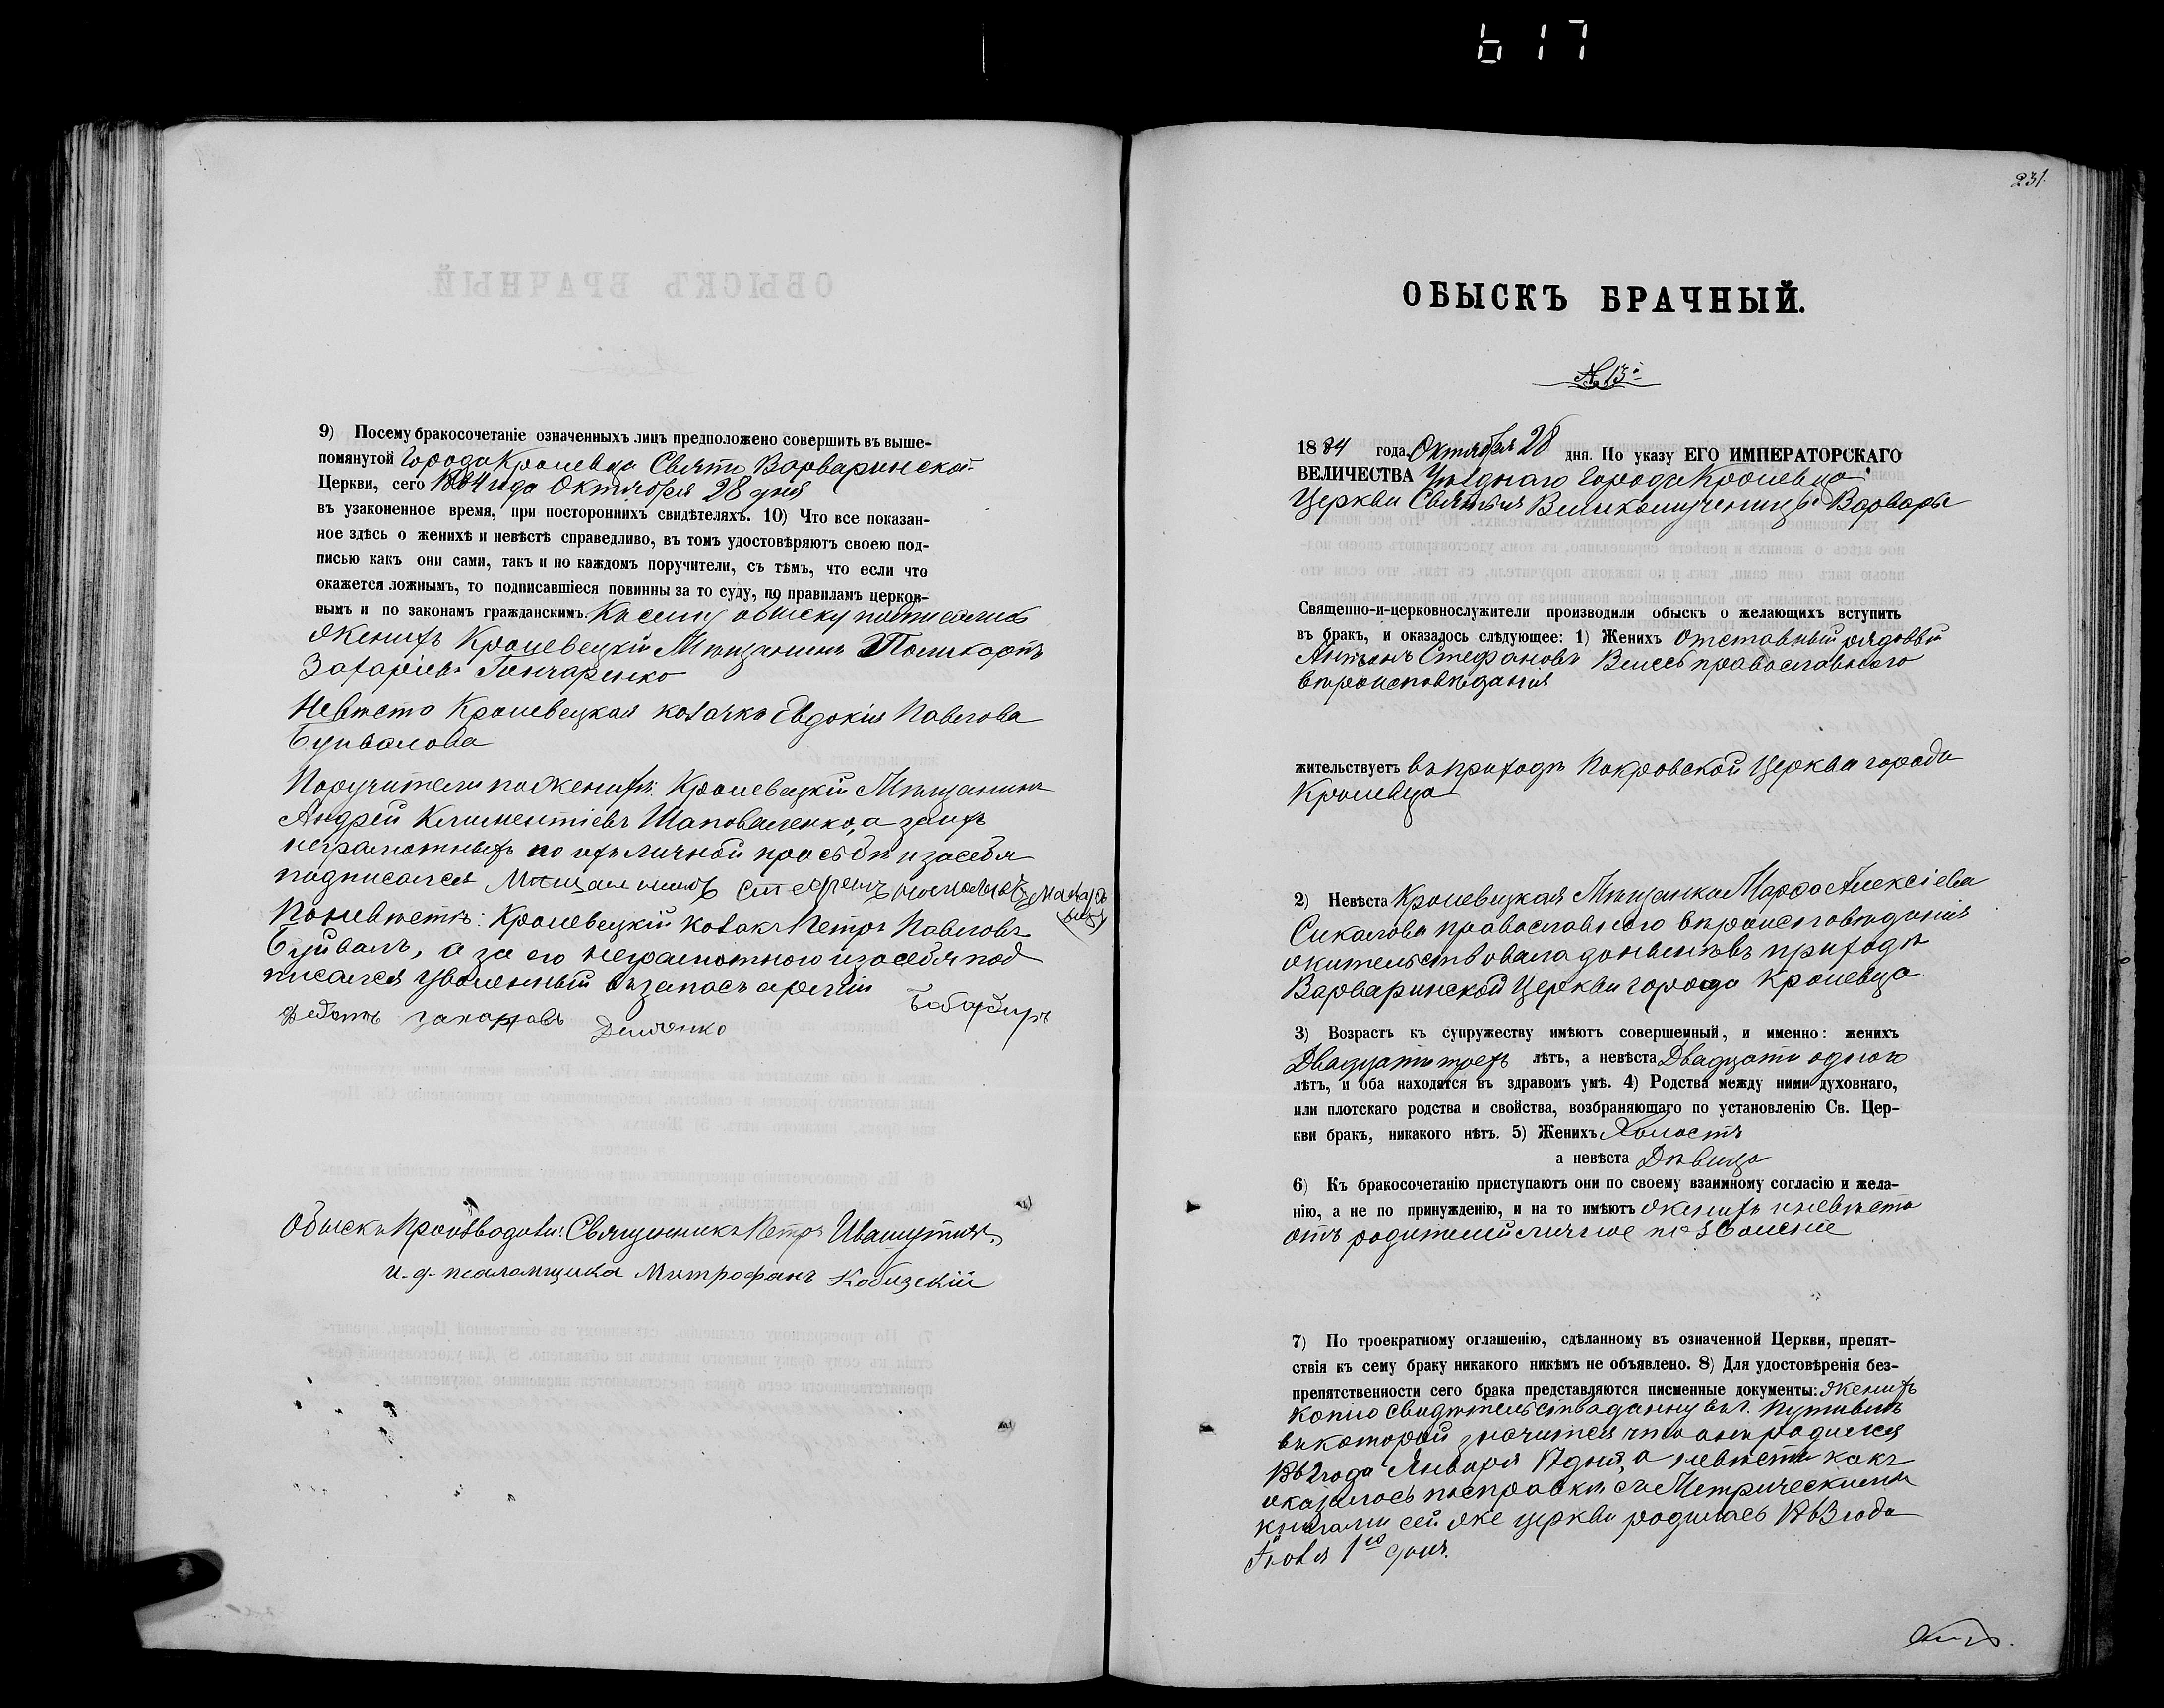 617
9) Посему бракосочетаніе означенныхъ лицъ предположено совершить въ выше-
помянутой Города Кролевца Свято Варваринской
Церкви, сего 1884 года Октября 28 дня
въ узаконенное время, при постороннихъ свидѣтеляхъ. 10) Что все показан-
ное здѣсь о женихѣ и невѣстѣ справедливо, въ томъ удостовѣряютъ своею под-
писью какъ они сами, такъ и по каждомъ поручители, съ тѣмъ, что если что
окажется ложнымъ, то подписавшіеся повинны за то суду, по правиламъ церков-
нымъ и по законамъ гражданскимъ. Къ сему обыску подписались
Женихъ Кролевецкій Мѣщанинъ Поликарпъ
Захаріевъ Гончаренко
Невѣста Кролевецкая козачка Евдокія Павлова
Буйвалова
Поручители по Женихѣ: Кролевецкій Мѣщанинъ
Андрей Климентіевъ Шаповаленко, а за ихъ
неграмотныхъ по ихъ личной прозьбѣ и за себя
подписался Мѣщанинъ
По невѣстѣ: Кролевецкій Козакъ Петръ Павловъ
Буйвалъ, а за его неграмотного и за себя под
писался уволенный въ запасъ арміи
Демченко
Обыскъ Производили: Священникъ Петръ Ивашутичъ
и. д. псаломщика Митрофанъ Кобизскій
231
ОБЫСКЪ БРАЧНЫЙ.
№ 13й
1884 года Октября 28 дня. По указу ЕГО ИМПЕРАТОРСКАГО
ВЕЛИЧЕСТВА Уѣзднаго Города Кролевца
Церкви Святыя Великомученицы Варвары
Священно-и-церковнослужители производили обыскъ о желающихъ вступить
въ бракъ, и оказалось слѣдующее: 1) Женихъ Отставный рядовый
Антонъ Стефановъ православного
вѣроисповѣданія
жительствуетъ въ приходѣ Покровской Церкви города
Кролевца
2) Невѣста Кролевецкая Мѣщанка Марфа Алексіева
Сикалова православного вѣроисповѣданія
жительствовала донынѣ въ приходѣ
Варваринской Церкви города Кролевца
3) Возрастъ къ супружеству имѣютъ совершенный, и именно: женихъ
Двадцати трехъ лѣтъ, а невѣста Двадцати одного
лѣтъ, и оба находятся въ здравомъ умѣ. 4) Родства между ними духовнаго,
или плотскаго родства и свойства, возбраняющаго по установленію Св. Цер-
кви бракъ, никакого нѣтъ. 5) Женихъ Холостъ
а невѣста Дѣвица
6) Къ бракосочетанію приступаютъ они по своему взаимному согласію и жела-
нію, а не по принужденію, и на то имѣютъ Женихъ и невѣста
отъ родителей личное позволеніе
7) По троекратному оглашенію, сдѣланному въ означенной Церкви, препят-
ствія къ сему браку никакого никѣмъ не объявлено. 8) Для удостовѣренія без-
препятственности сего брака представляются писменные документы: Женихъ
копію свидѣтельства данну въ г. Путивлѣ
въ которой значится что онъ родился
1862 года Января 17 дня, а невѣста какъ
оказалось по справкѣ съ Метрическими
книгами сей же церкви родилась 1863 года
Іюля 1го дня.